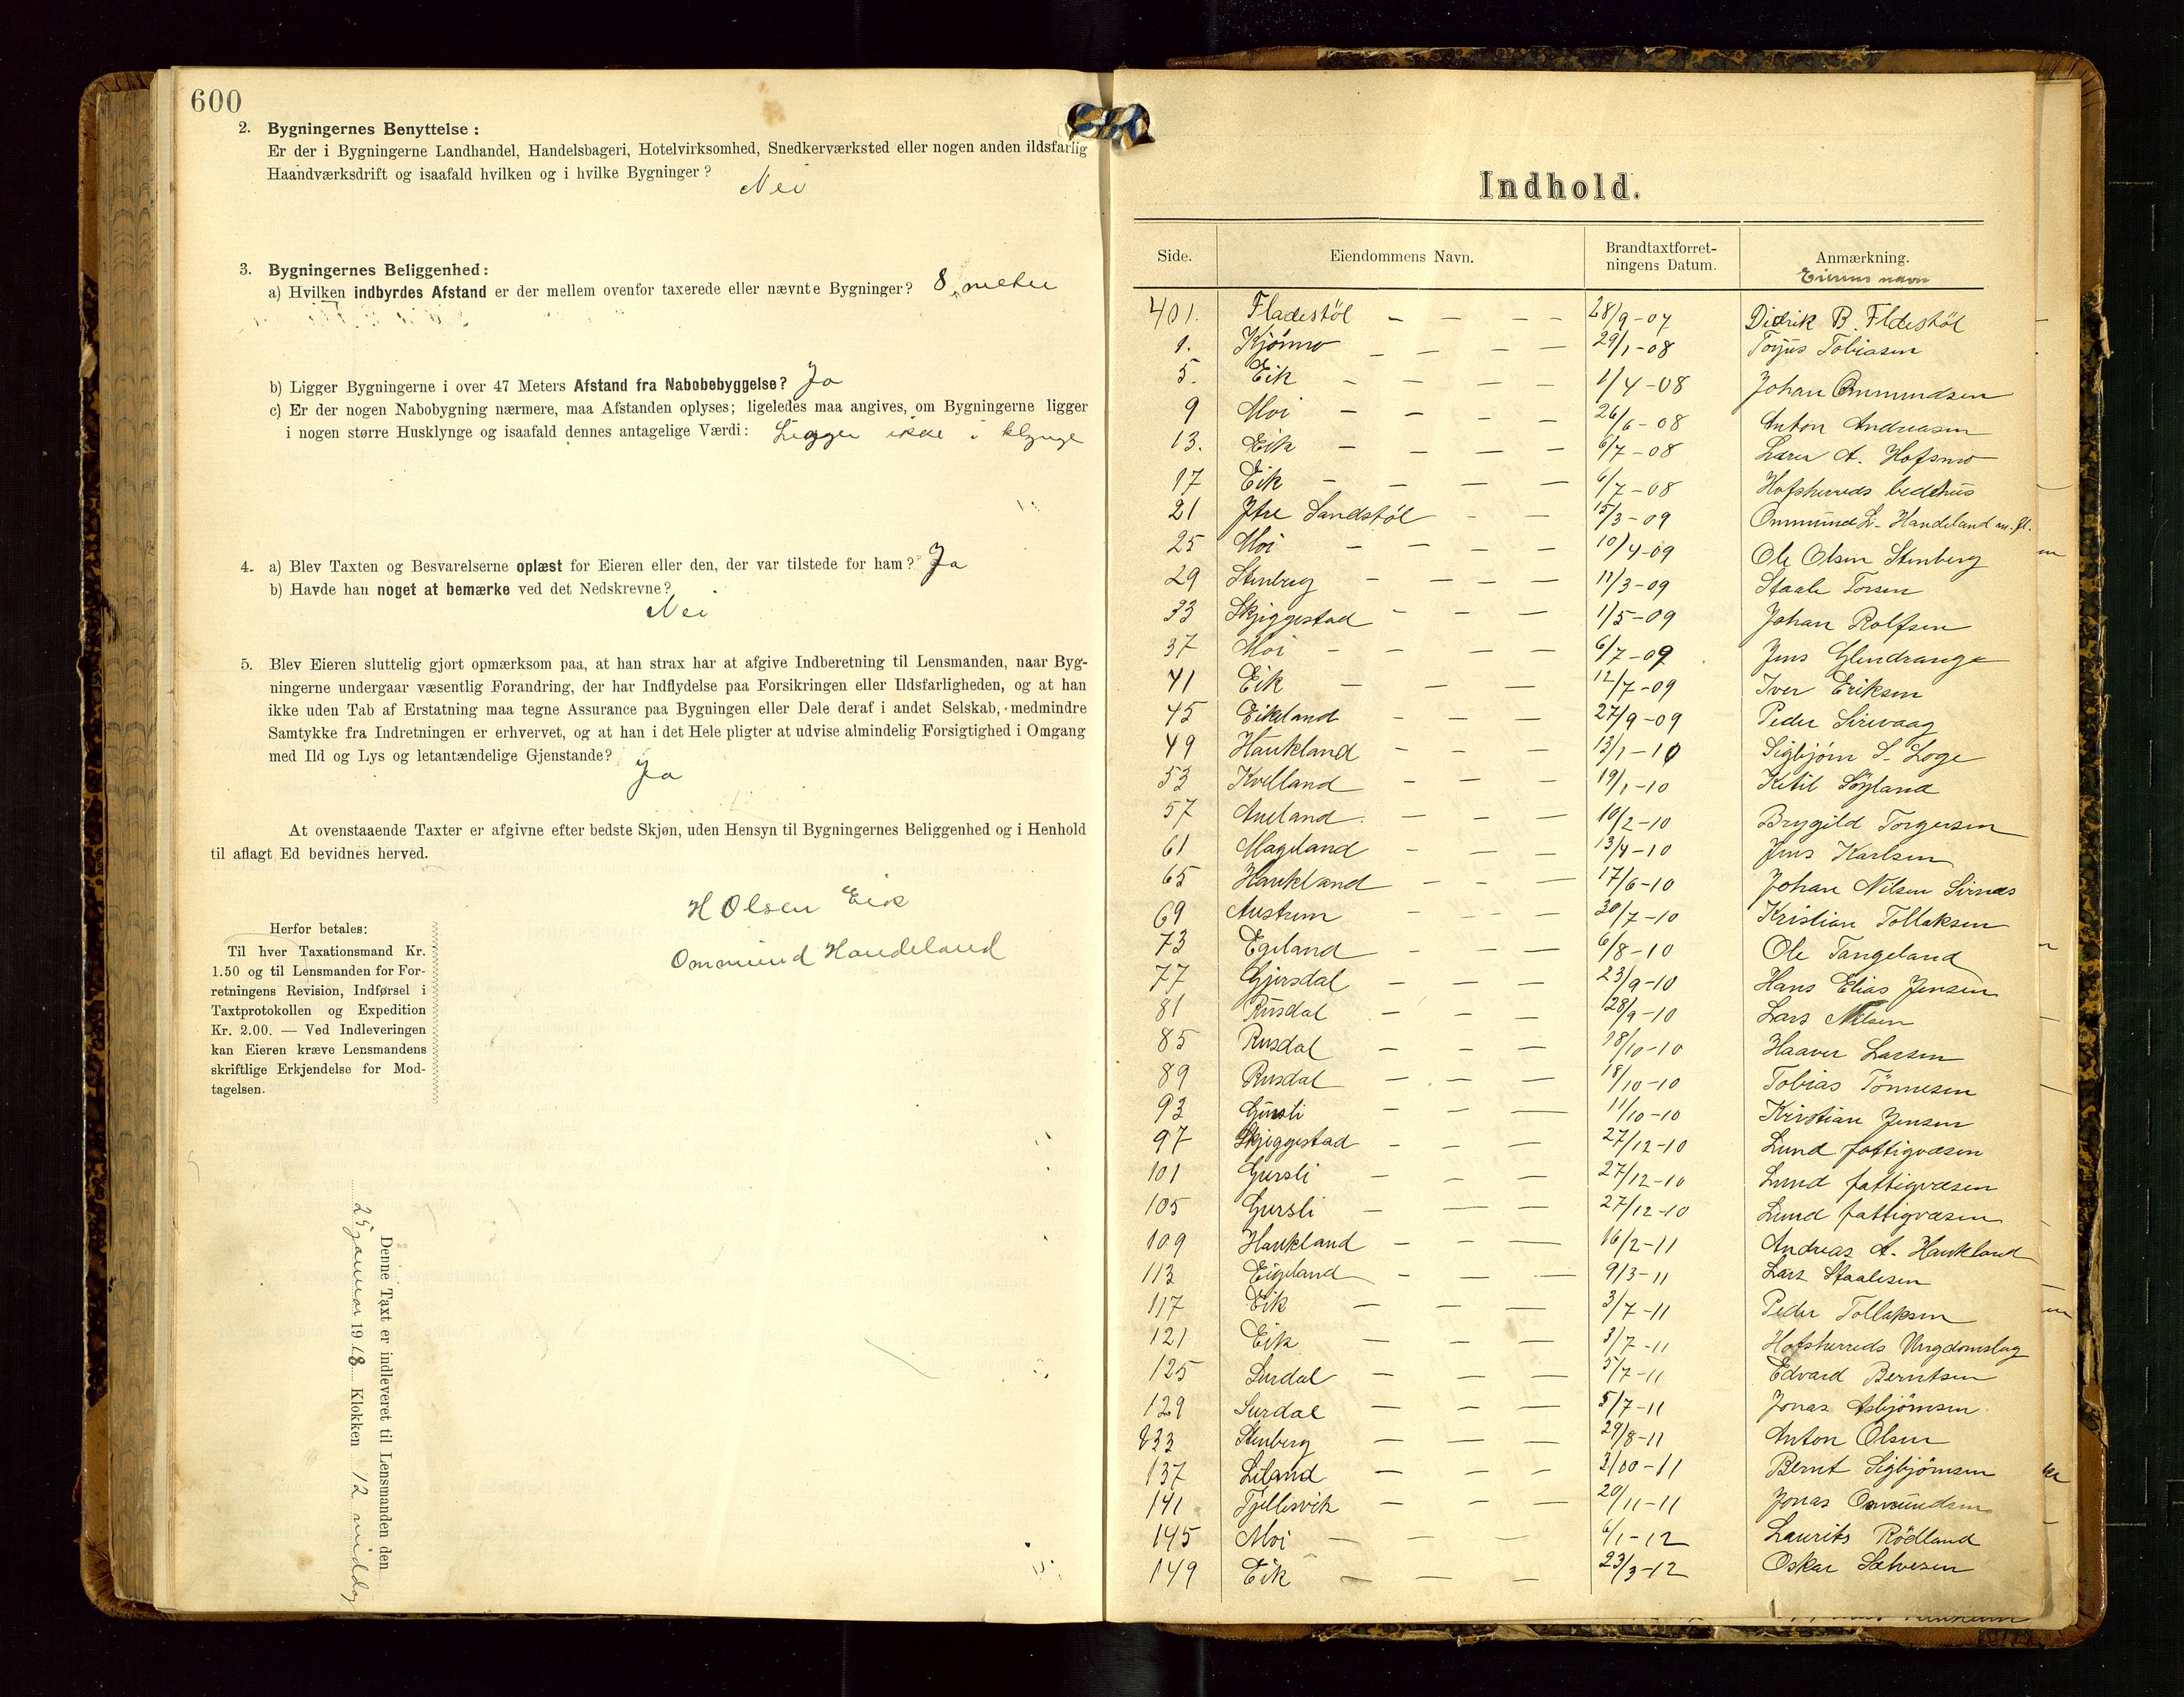 600
2. Bygningernes Benyttelse :
Er der i Bygningerne Landhandel, Handelsbageri, Hotelvirksomhed, Snedkerværksted eller nogen anden ildsfarlig
Haandværksdrift og isaafald hvilken og i hvilke Bygninger ?
Nei
3. Bygningernes Beliggenhed :
a) Hvilken indbyrdes Afstand er der mellem ovenfor taxerede eller nævnte Bygninger ? 8 meter
b) Ligger Bygningerne i over 47 Meters Afstand fra Nabobebyggelse ? Ja
c) Er der nogen Nabobygning nærmere, maa Afstanden oplyses; ligeledes maa angives, om Bygningerne ligger
i nogen større Husklynge og isaafald dennes antagelige Værdi : Ligger ikke i klynge
4. a) Blev Taxten og Besvarelserne oplæst for Eieren eller den, der var tilstede for ham ? Ja
b) Havde han noget at bemærke ved det Nedskrevne ?
Nei
5. Blev Eieren sluttelig gjort opmærksom paa, at han strax har at afgive Indberetning til Lensmanden, naar Byg-
ningerne undergaar væsentlig Forandring, der har Indflydelse paa Forsikringen eller Ildsfarligheden, og at han
ikke uden Tab af Erstatning maa tegne Assurance paa Bygningen eller Dele deraf i andet Selskab, medmindre
Samtykke fra Indretningen er erhvervet, og at han i det Hele pligter at udvise almindelig Forsigtighed i Omgang
med Ild og Lys og letantændelige Gjenstande ? Ja
At ovenstaaende Taxter er afgivne efter bedste Skjøn, uden Hensyn til Bygningernes Beliggenhed og i Henhold
til aflagt Ed bevidnes herved.
H Olsen Eik
Ommund Handeland
Herfor betales:
Til hver Taxationsmand Kr.
1.50 og til Lensmanden for For-
retningens Revision, Indførsel i
Taxtprotokollen og Expedition
Kr. 2.00. — Ved Indleveringen
kan Eieren kræve Lensmandens
skriftlige Erkjendelse for Mod-
tagelsen.
Denne Taxt er indleveret til Lensmanden den
25 januar 1918 Klokken 12 middag
Indhold.
Side. Eiendommens Navn. Brandtaxtforret-
ningens Datum. Anmærkning.
Eierens navn
401. Fladestöl — — — — 28/9-07 Didrik B. Fldestöl
1. Kjörmo — — — — 29/1-08 Torjus Tobiasen
5. Eik — — — — 1/4-08 Johan Ommundsen
9 Moi — — — — 26/6-08 Anton Andreasen
13. Eik — — — — 6/7-08 Lars A. Hofsmo
17 Eik — — — — 6/7-08 Hofsherreds bedehus
21 Ytre Sandstöl — — 15/3-09 Ommund L. Handeland m. fl.
25 Moi — — — — 10/4-09 Ole Olsen Stenberg
29 Stenberg — — — — 11/3-09 Staale Torsen
33 Skjeggestad — — — 1/5-09 Johan Rolfsen
37 Moi — — — — 6/7-09 Jens Glendrange
41 Eik — — — 12/7-09 Iver Eriksen
45 Eikeland — — — 27/9-09 Peder Sirevaag
49 Haukland — — — 13/1-10 Sigbjørn S. Loge
53 Kvelland — — — 19/1-10 Ketil Söyland
57 Aueland — — — 10/2-10 Brygild Torgersen
61 Mageland — — — 13/4-10 Jens Karlsen
65 Haukland — — — 17/6-10 Johan Nilsen Sirnes
69 Austrum — — — 30/7-10 Kristian Tollaksen
73 Egeland — — — 6/8-10 Ole Tangeland
77 Gjersdal — — — 23/9-10 Hans Elias Jensen
81 Rusdal — — — 28/9-10 Lars Nilsen
85 Rusdal — — — 18/10-10 Haaver Larsen
89 Rusdal — — — 18/10-10 Tobias Tönnesen
93 Gursli — — — 11/10-10 Kristian Jensen
97 Skjeggestad — — — 27/12-10 Lund fattigvæsen
101 Gursli — — — 27/12-10 Lund fattigvæsen
105 Gursli — — — 27/12-10 Lund fattigvæsen
109 Haukland — — — 16/2-11 Andreas A. Haukland
113 Eigeland — — — 9/3-11 Lars Staalesen
117 Eik — — — 3/7-11 Peder Tollaksen
121 Eik — — — 3/7-11 Hofsherreds Ungdomslag
125 Surdal — — — 5/7-11 Edvard Berntsen
129 Surdal — — — 5/7-11 Jonas Asbjörnsen
133 Stenberg — — — 29/8-11 Anton Olsen
137 Liland — — — 3/00-11 Bernt Sigbjörnsen
141 Tjellesvik — — — 20/11-11 Jonas Osmundsen
145 Moi — — — 6/1-12 Laurits Rödland
149 Eik — — — 23/3-12 Oskar Salvesen